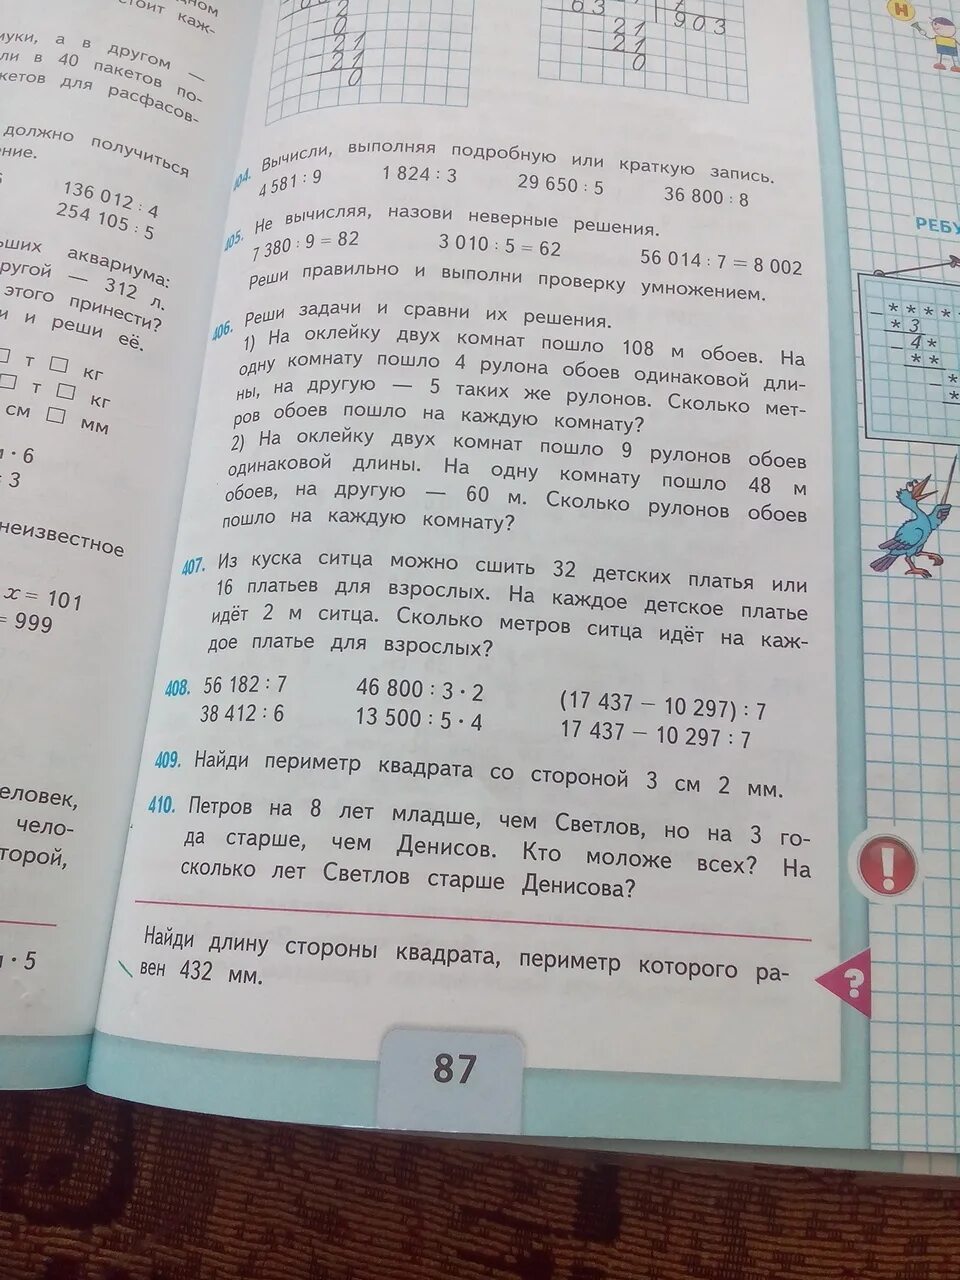 дном
стоит каж-
муки, а в другом —
ли в 40 пакетов по-
кетов для расфасов-
должно получиться
ение.
136 012 : 4
254 105 : 5
ьших аквариума:
ругой — 312 л.
этого принести?
и и реши её.
т □ кг
т □ кг
см □ мм
· 6
= 3
неизвестное
x = 101
= 999
еловек,
чело-
торой,
· 5
2
0
21
21
0
63
903
21
21
0
404. Вычисли, выполняя подробную или краткую запись.
4 581 : 9 1 824 : 3 29 650 : 5 36 800 : 8
405. Не вычисляя, назови неверные решения.
7 380 : 9 = 82 3 010 : 5 = 62 56 014 : 7 = 8 002
Реши правильно и выполни проверку умножением.
406. Реши задачи и сравни их решения.
1) На оклейку двух комнат пошло 108 м обоев. На
одну комнату пошло 4 рулона обоев одинаковой дли-
ны, на другую — 5 таких же рулонов. Сколько мет-
ров обоев пошло на каждую комнату?
2) На оклейку двух комнат пошло 9 рулонов обоев
одинаковой длины. На одну комнату пошло 48 м
обоев, на другую — 60 м. Сколько рулонов обоев
пошло на каждую комнату?
407. Из куска ситца можно сшить 32 детских платья или
16 платьев для взрослых. На каждое детское платье
идёт 2 м ситца. Сколько метров ситца идёт на каж-
дое платье для взрослых?
408. 56 182 : 7 46 800 : 3 · 2 (17 437 − 10 297) : 7
38 412 : 6 13 500 : 5 · 4 17 437 − 10 297 : 7
409. Найди периметр квадрата со стороной 3 см 2 мм.
410. Петров на 8 лет младше, чем Светлов, но на 3 го-
да старше, чем Денисов. Кто моложе всех? На
сколько лет Светлов старше Денисова?
Найди длину стороны квадрата, периметр которого ра-
вен 432 мм.
?
87
Н
РЕБУ
* * * * *
* 3
4 *
* *
*
*
!